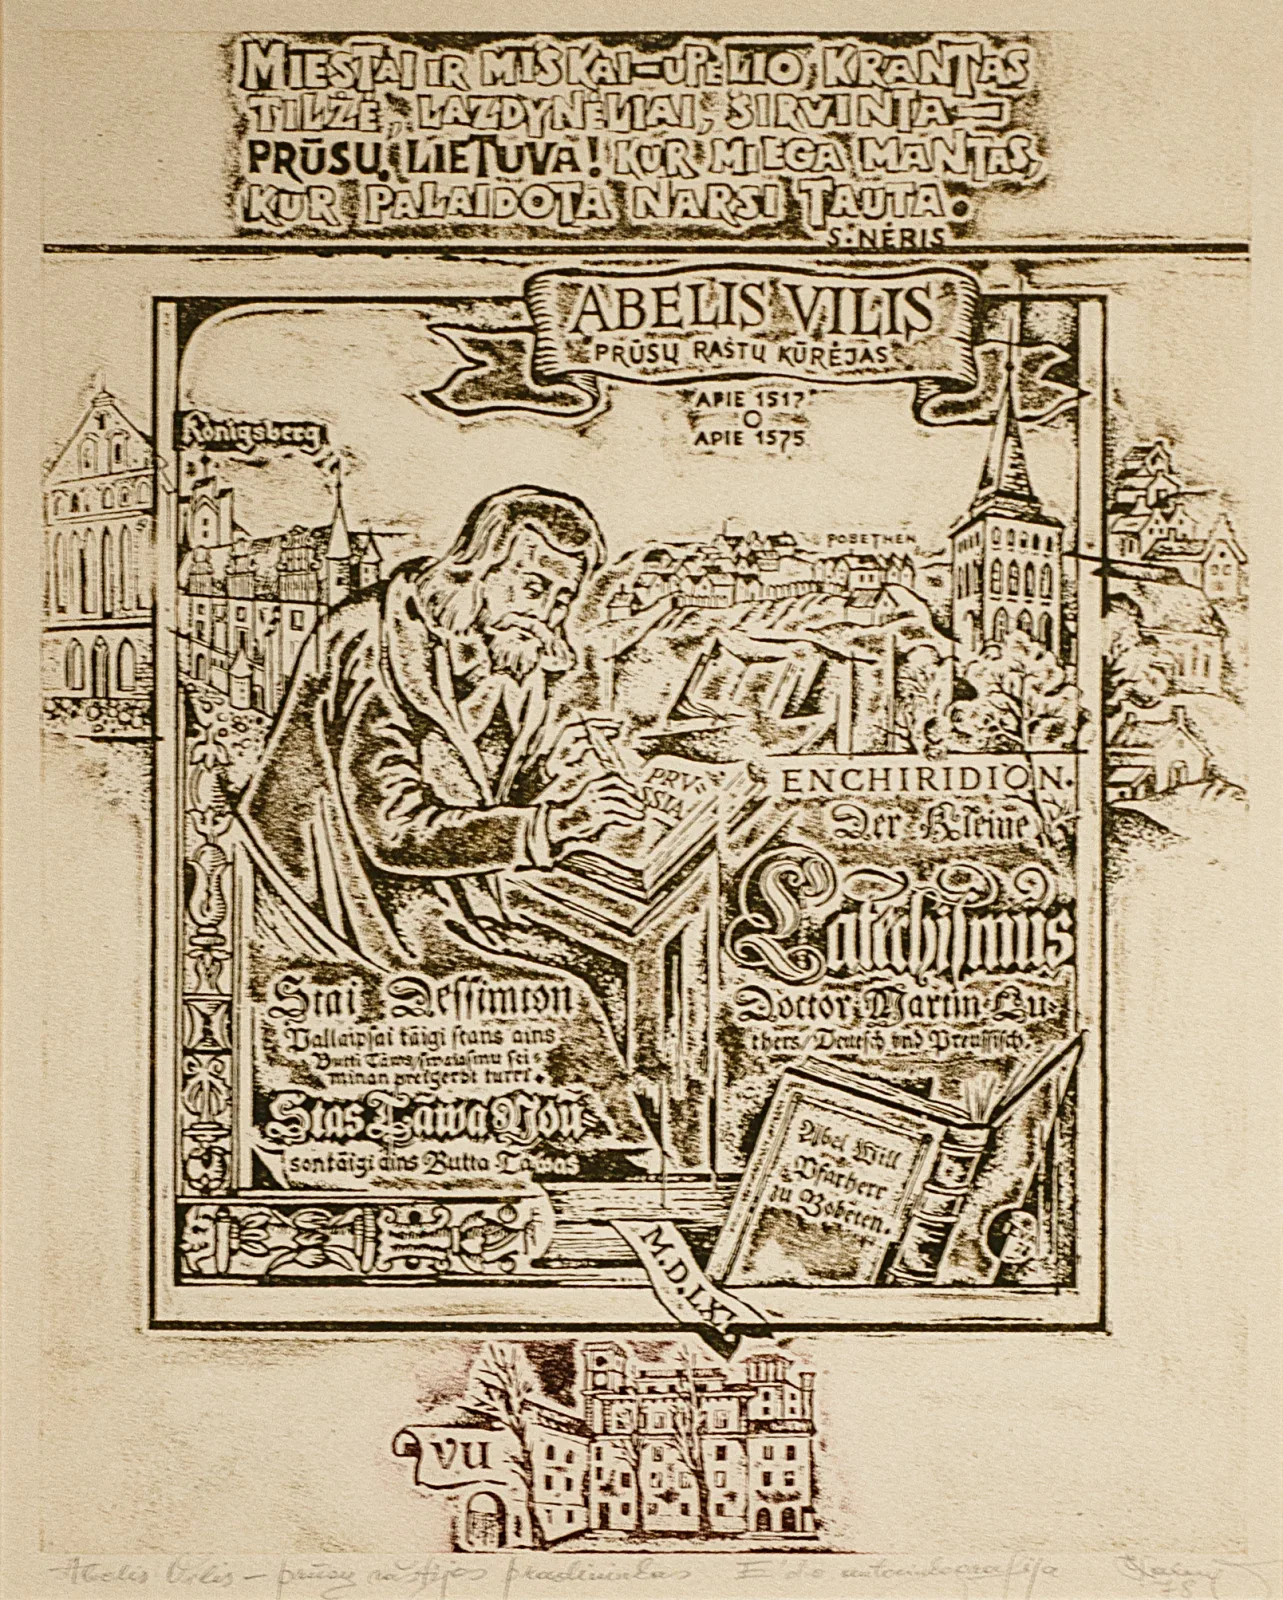 MIESTAI IR MIŠKAI – UPELIO KRANTAS
TILŽĖ, LAZDYNĖLIAI, ŠIRVINTA –
PRŪSŲ LIETUVA! KUR MIEGA MANTAS,
KUR PALAIDOTA NARSI TAUTA.
S. NĖRIS
ABELIS VILIS
PRŪSŲ RAŠTŲ KŪRĖJAS
APIE 1517
APIE 1575
Königsberg
POBETHEN
PRVS
SSIA
ENCHIRIDION.
Der Kleine
Catechismus
Doctor Martin Lu-
thers/Deutsch vnd Preussisch.
Stai Dessimton
Pallaipsai tāigi stans ains
Butti Tāws/swaiasmu sei=
minan preigerdt turri.
Stas Tāwa Noū
sontāigi ains Butta Tawas
Abel Will
Pfarherr
zu Pobeten.
M.D.LXI
VU
Abelis Vilis – prūsų raštijos pradininkas